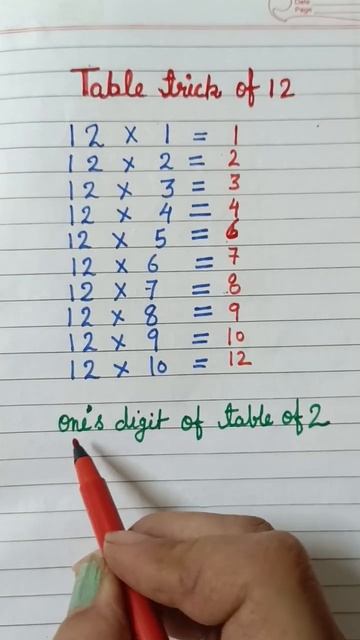 Date
Page
Table trick of 12
12 × 1 = 1
12 × 2 = 2
12 × 3 = 3
12 × 4 = 4
12 × 5 = 6
12 × 6 = 7
12 × 7 = 8
12 × 8 = 9
12 × 9 = 10
12 × 10 = 12
one's digit of table of 2